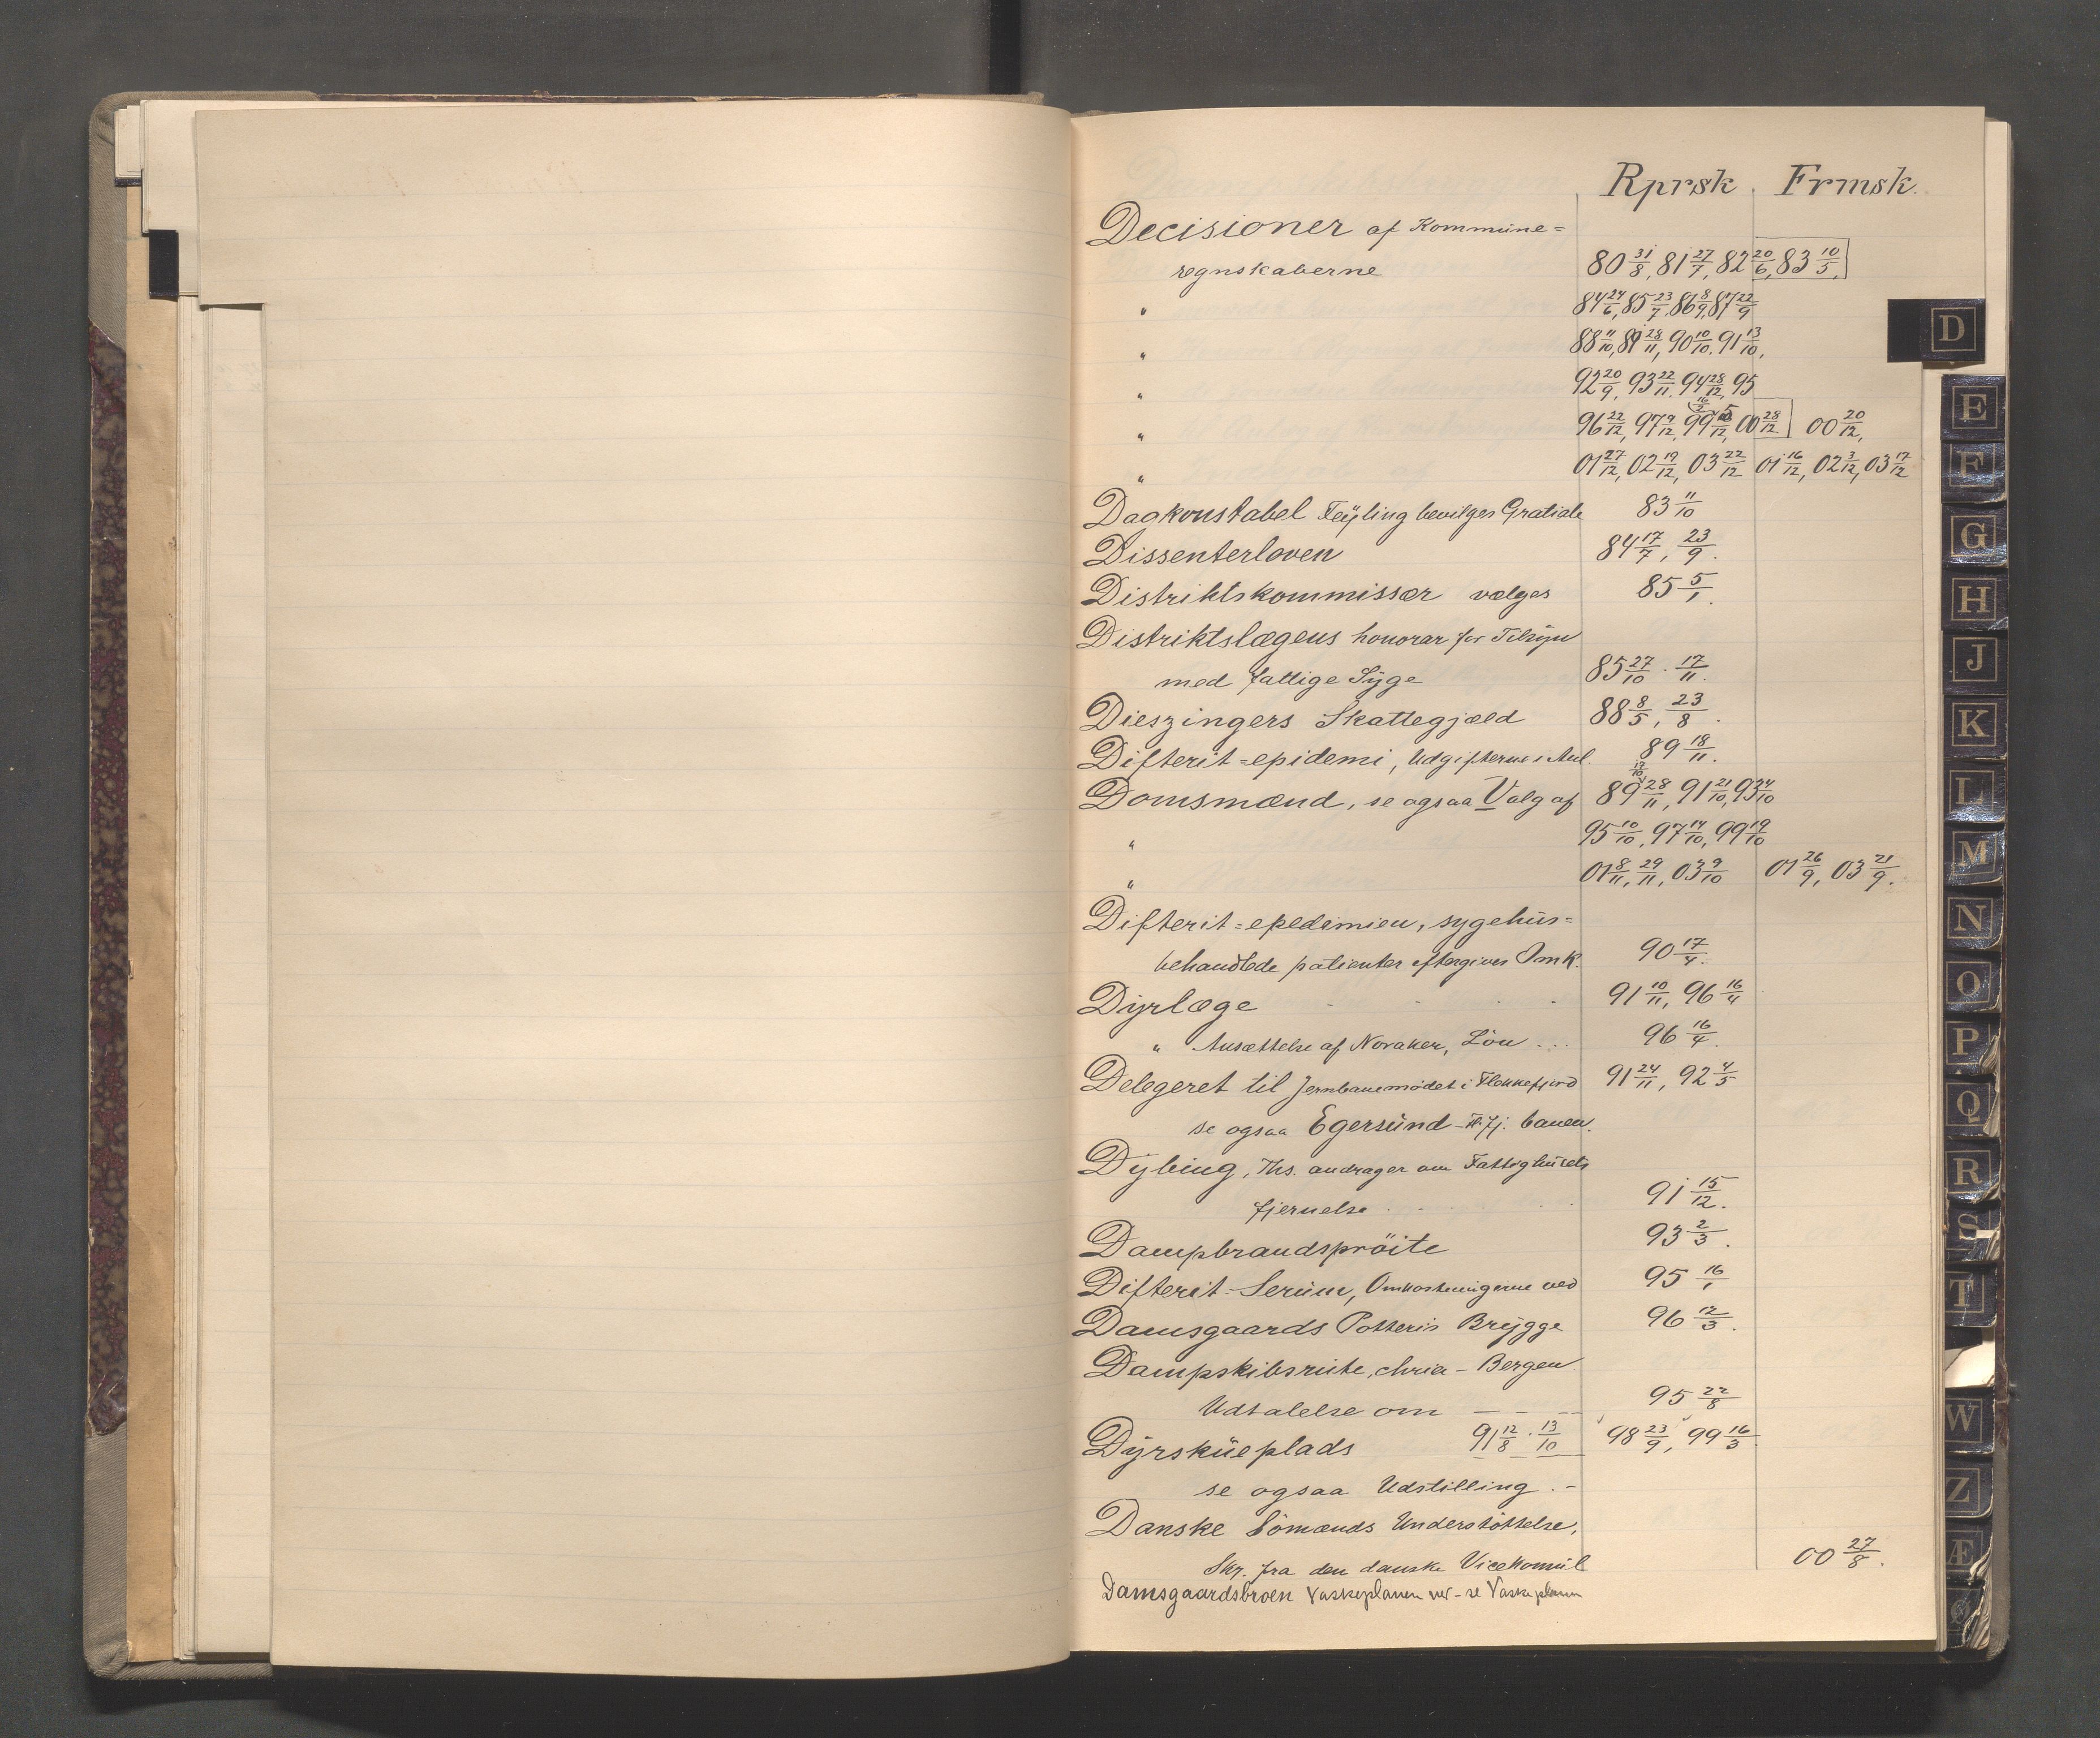 Rprsk Frmsk.
Decisioner af Kommune=
regnskaberne 80 31/8, 81 27/7, 82 20/6, 83 10/5,
" 84 24/6, 85 23/7, 86 8/9, 87 22/9
" 88 11/10, 89 28/11, 90 10/10, 91 13/10,
" 92 20/9, 93 22/11, 94 28/12, 95
" 96 22/12, 97 9/12, 99 /12, 00 28/12 00 20/12,
" 01 27/12, 02 19/12, 03 22/12 01 16/12, 02 3/12, 03 17/12
Dagkonstabel Tejling bevilges Gratiale 83 11/10
Dissenterloven 84 17/7, 23/9.
Distriktskommissær vælges 85 5/1.
Distriktslægens honorar for Tilsyn
med fattige Syge 85 27/10 . 17/11.
Dieszingers Skattegjæld 88 8/5, 23/8.
Difterit=epidemi, Udgifterne i Anl. 89 18/11.
Domsmænd, se ogsaa Valg af 89 28/11, 91 21/10, 93 4/10
" 95 10/10, 97 14/10, 99 19/10
" 01 8/11, 29/11, 03 9/10 01 26/9, 03 21/9.
Difterit=epedemien, sygehus=
behandlede patienter eftergives Omk. 90 17/4.
Dyrlæge 91 10/11, 96 16/4
" Ansættelse af Noraker, Lön ... 96 16/4.
Delegeret til Jernbanemödet i Flekkefjord 91 24/11, 92 4/5
se ogsaa Egersund-Fl.fj. banen.
Dybing, Ths. andrager om Fattighusets
fjernelse 91 15/12.
Dampbrandspröite 93 2/3.
Difterit-Serum, Omkostningerne ved 95 16/1
Damsgaards Potteris Brygge 96 12/3.
Dampskibsrute, Chria - Bergen
Udtalelse om - - - 95 22/8
Dyrskueplads 91 12/8 . 13/10 98 23/9, 99 16/3.
se ogsaa Udstilling .-
Danske Sömænds Understöttelse,
Skr. fra den danske Vicekonsul 00 27/8.
Damsgaardsbroen Vaskeplanen ved - se Vaskeplanen
D
E
F
G
H
J
K
L
M
N
O
P
Q
R
S
T
W
Z
Æ